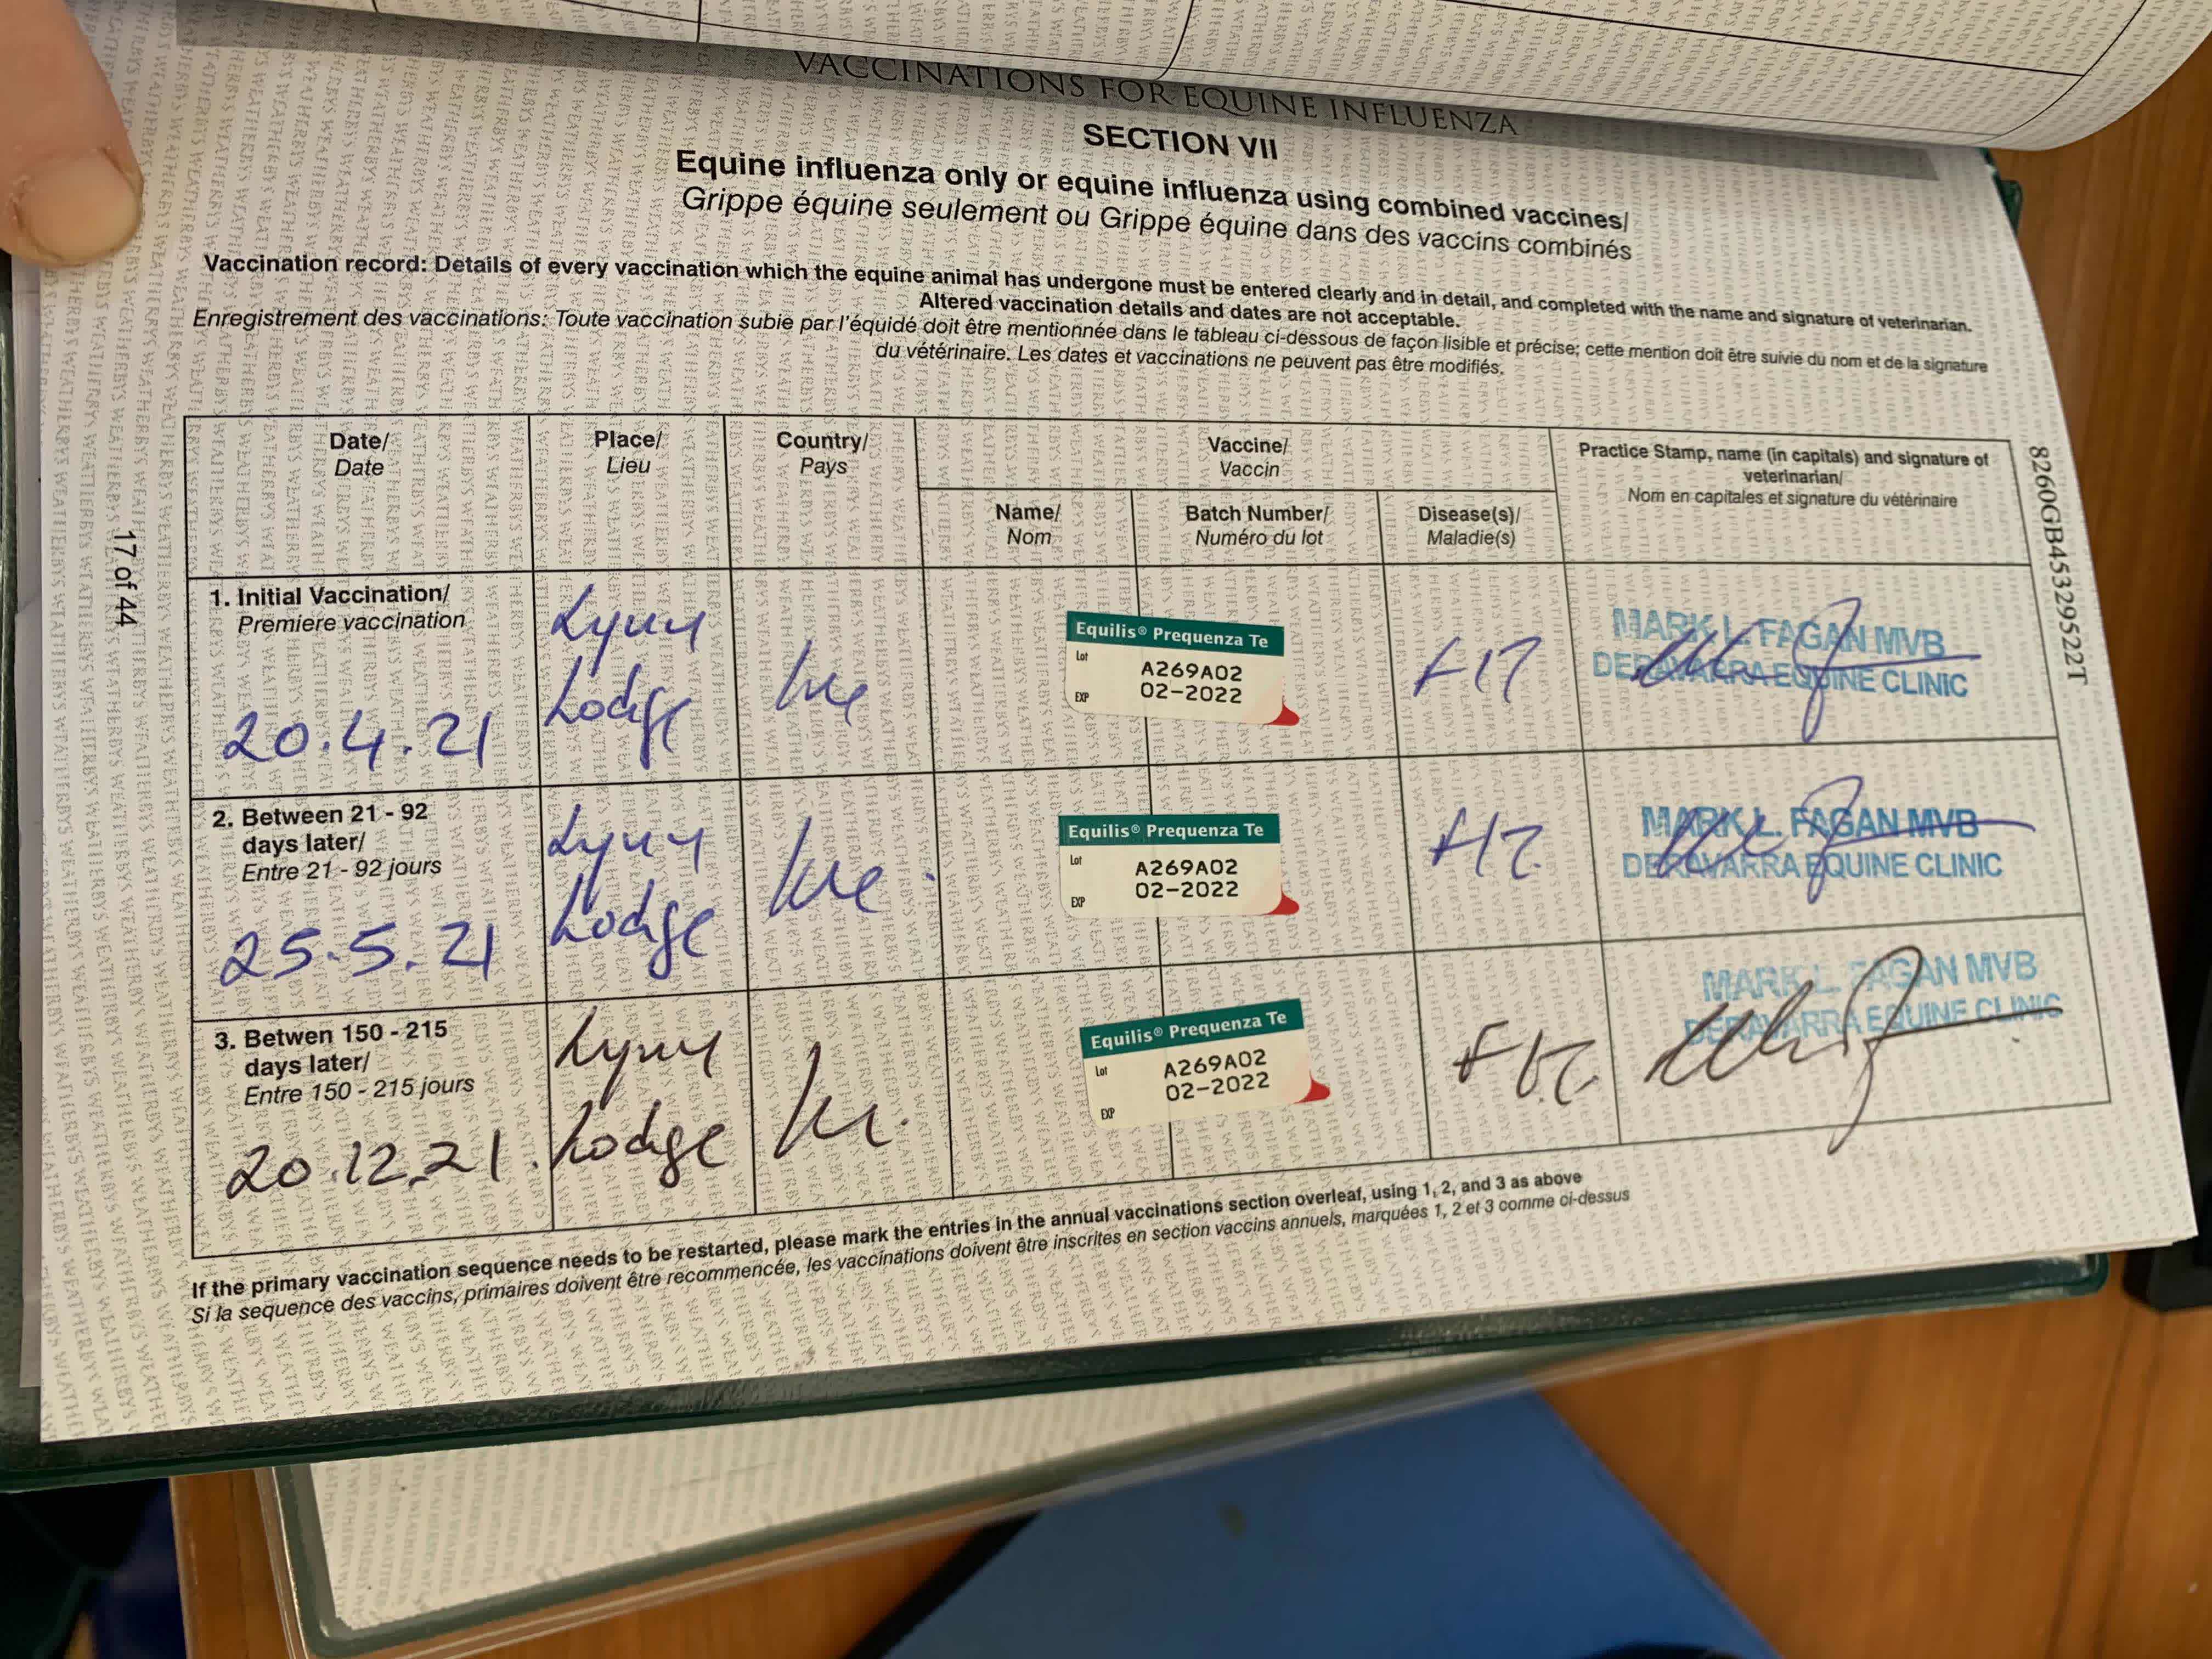 VACCINATIONS FOR EQUINE INFLUENZA
SECTION VII
Equine influenza only or equine influenza using combined vaccines/
Grippe équine seulement ou Grippe équine dans des vaccins combinés
Vaccination record: Details of every vaccination which the equine animal has undergone must be entered clearly and in detail, and completed with the name and signature of veterinarian.
Altered vaccination details and dates are not acceptable.
Enregistrement des vaccinations: Toute vaccination subie par l'équidé doit être mentionnée dans le tableau ci-dessous de façon lisible et précise; cette mention doit être suivie du nom et de la signature
du vétérinaire. Les dates et vaccinations ne peuvent pas être modifiés.
Date/
Date
Place/
Lieu
Country/
Pays
Vaccine/
Vaccin
Name/
Nom
Batch Number/
Numéro du lot
Disease(s)/
Maladie(s)
Practice Stamp, name (in capitals) and signature of
veterinarian/
Nom en capitales et signature du vétérinaire
1. Initial Vaccination/
Premiere vaccination
20.4.21
Lynn
Lodge
Ire
Equilis® Prequenza Te
Lot
A269A02
EXP
02-2022
MARK L. FAGAN MVB
DERAVARRA EQUINE CLINIC
2. Between 21 - 92
days later/
Entre 21 - 92 jours
25.5.21
Lynn
Lodge
Ire.
Equilis® Prequenza Te
Lot
A269A02
EXP
02-2022
MARK L. FAGAN MVB
DERAVARRA EQUINE CLINIC
3. Betwen 150 - 215
days later/
Entre 150 - 215 jours
20.12.21.
Lynn
Lodge
Equilis® Prequenza Te
Lot
A269A02
EXP
02-2022
MARK L. FAGAN MVB
DERAVARRA EQUINE CLINIC
If the primary vaccination sequence needs to be restarted, please mark the entries in the annual vaccinations section overleaf, using 1, 2, and 3 as above
Si la sequence des vaccins, primaires doivent être recommencée, les vaccinations doivent être inscrites en section vaccins annuels, marquées 1, 2 et 3 comme ci-dessus
17 of 44
8260GB45329522T